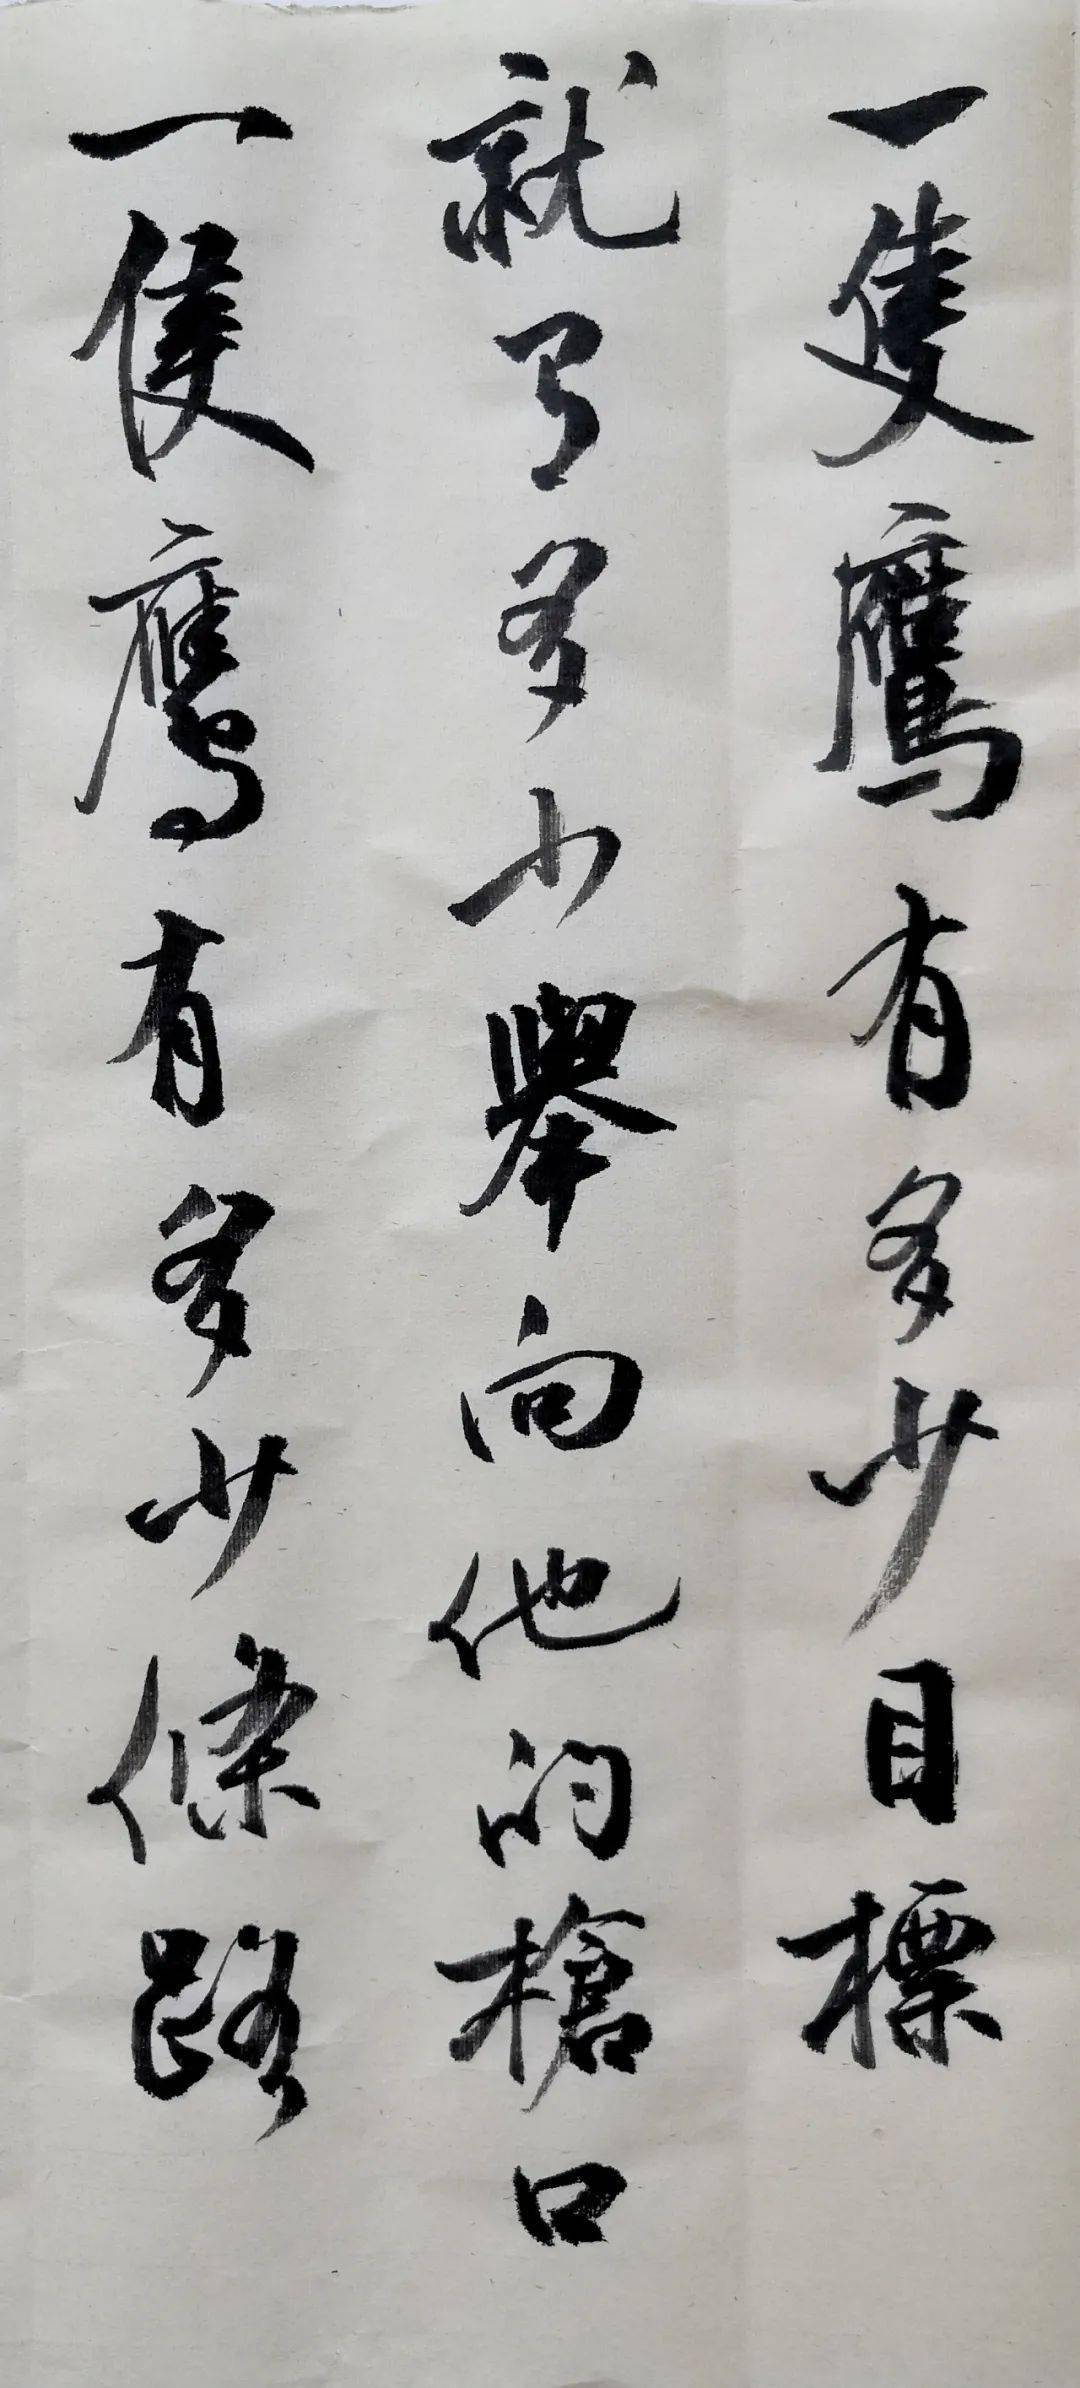 一隻鷹有多少目標
就有多少舉向他的槍口
一隻鷹有多少條路